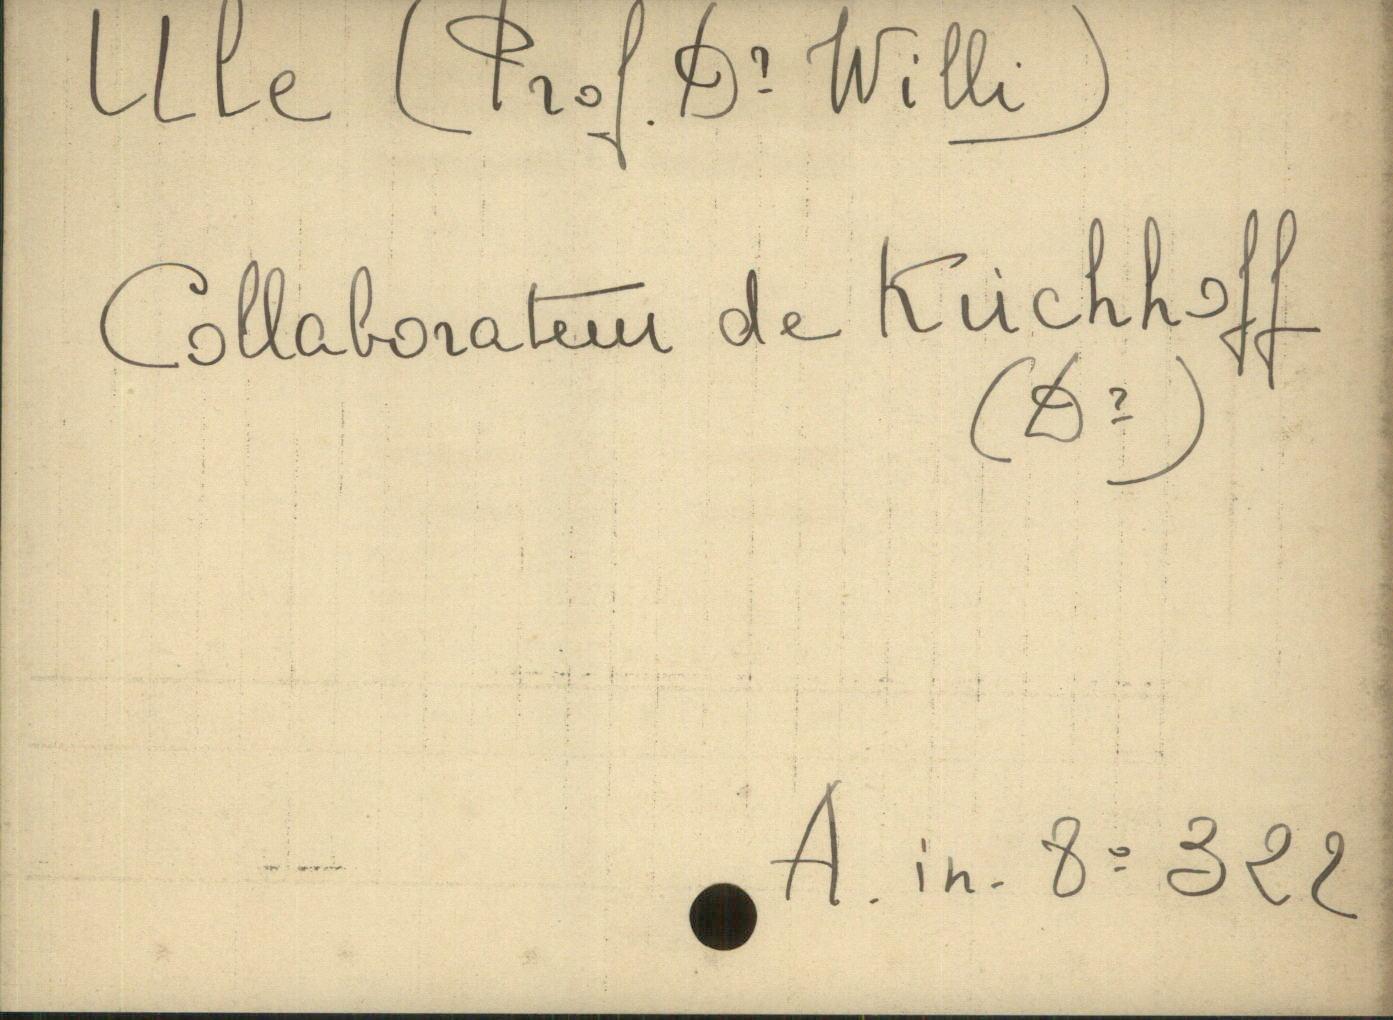 Ule (Prof. Dr Willi)
Collaborateur de Kirchhoff
(Dr)
A. in-8º 322